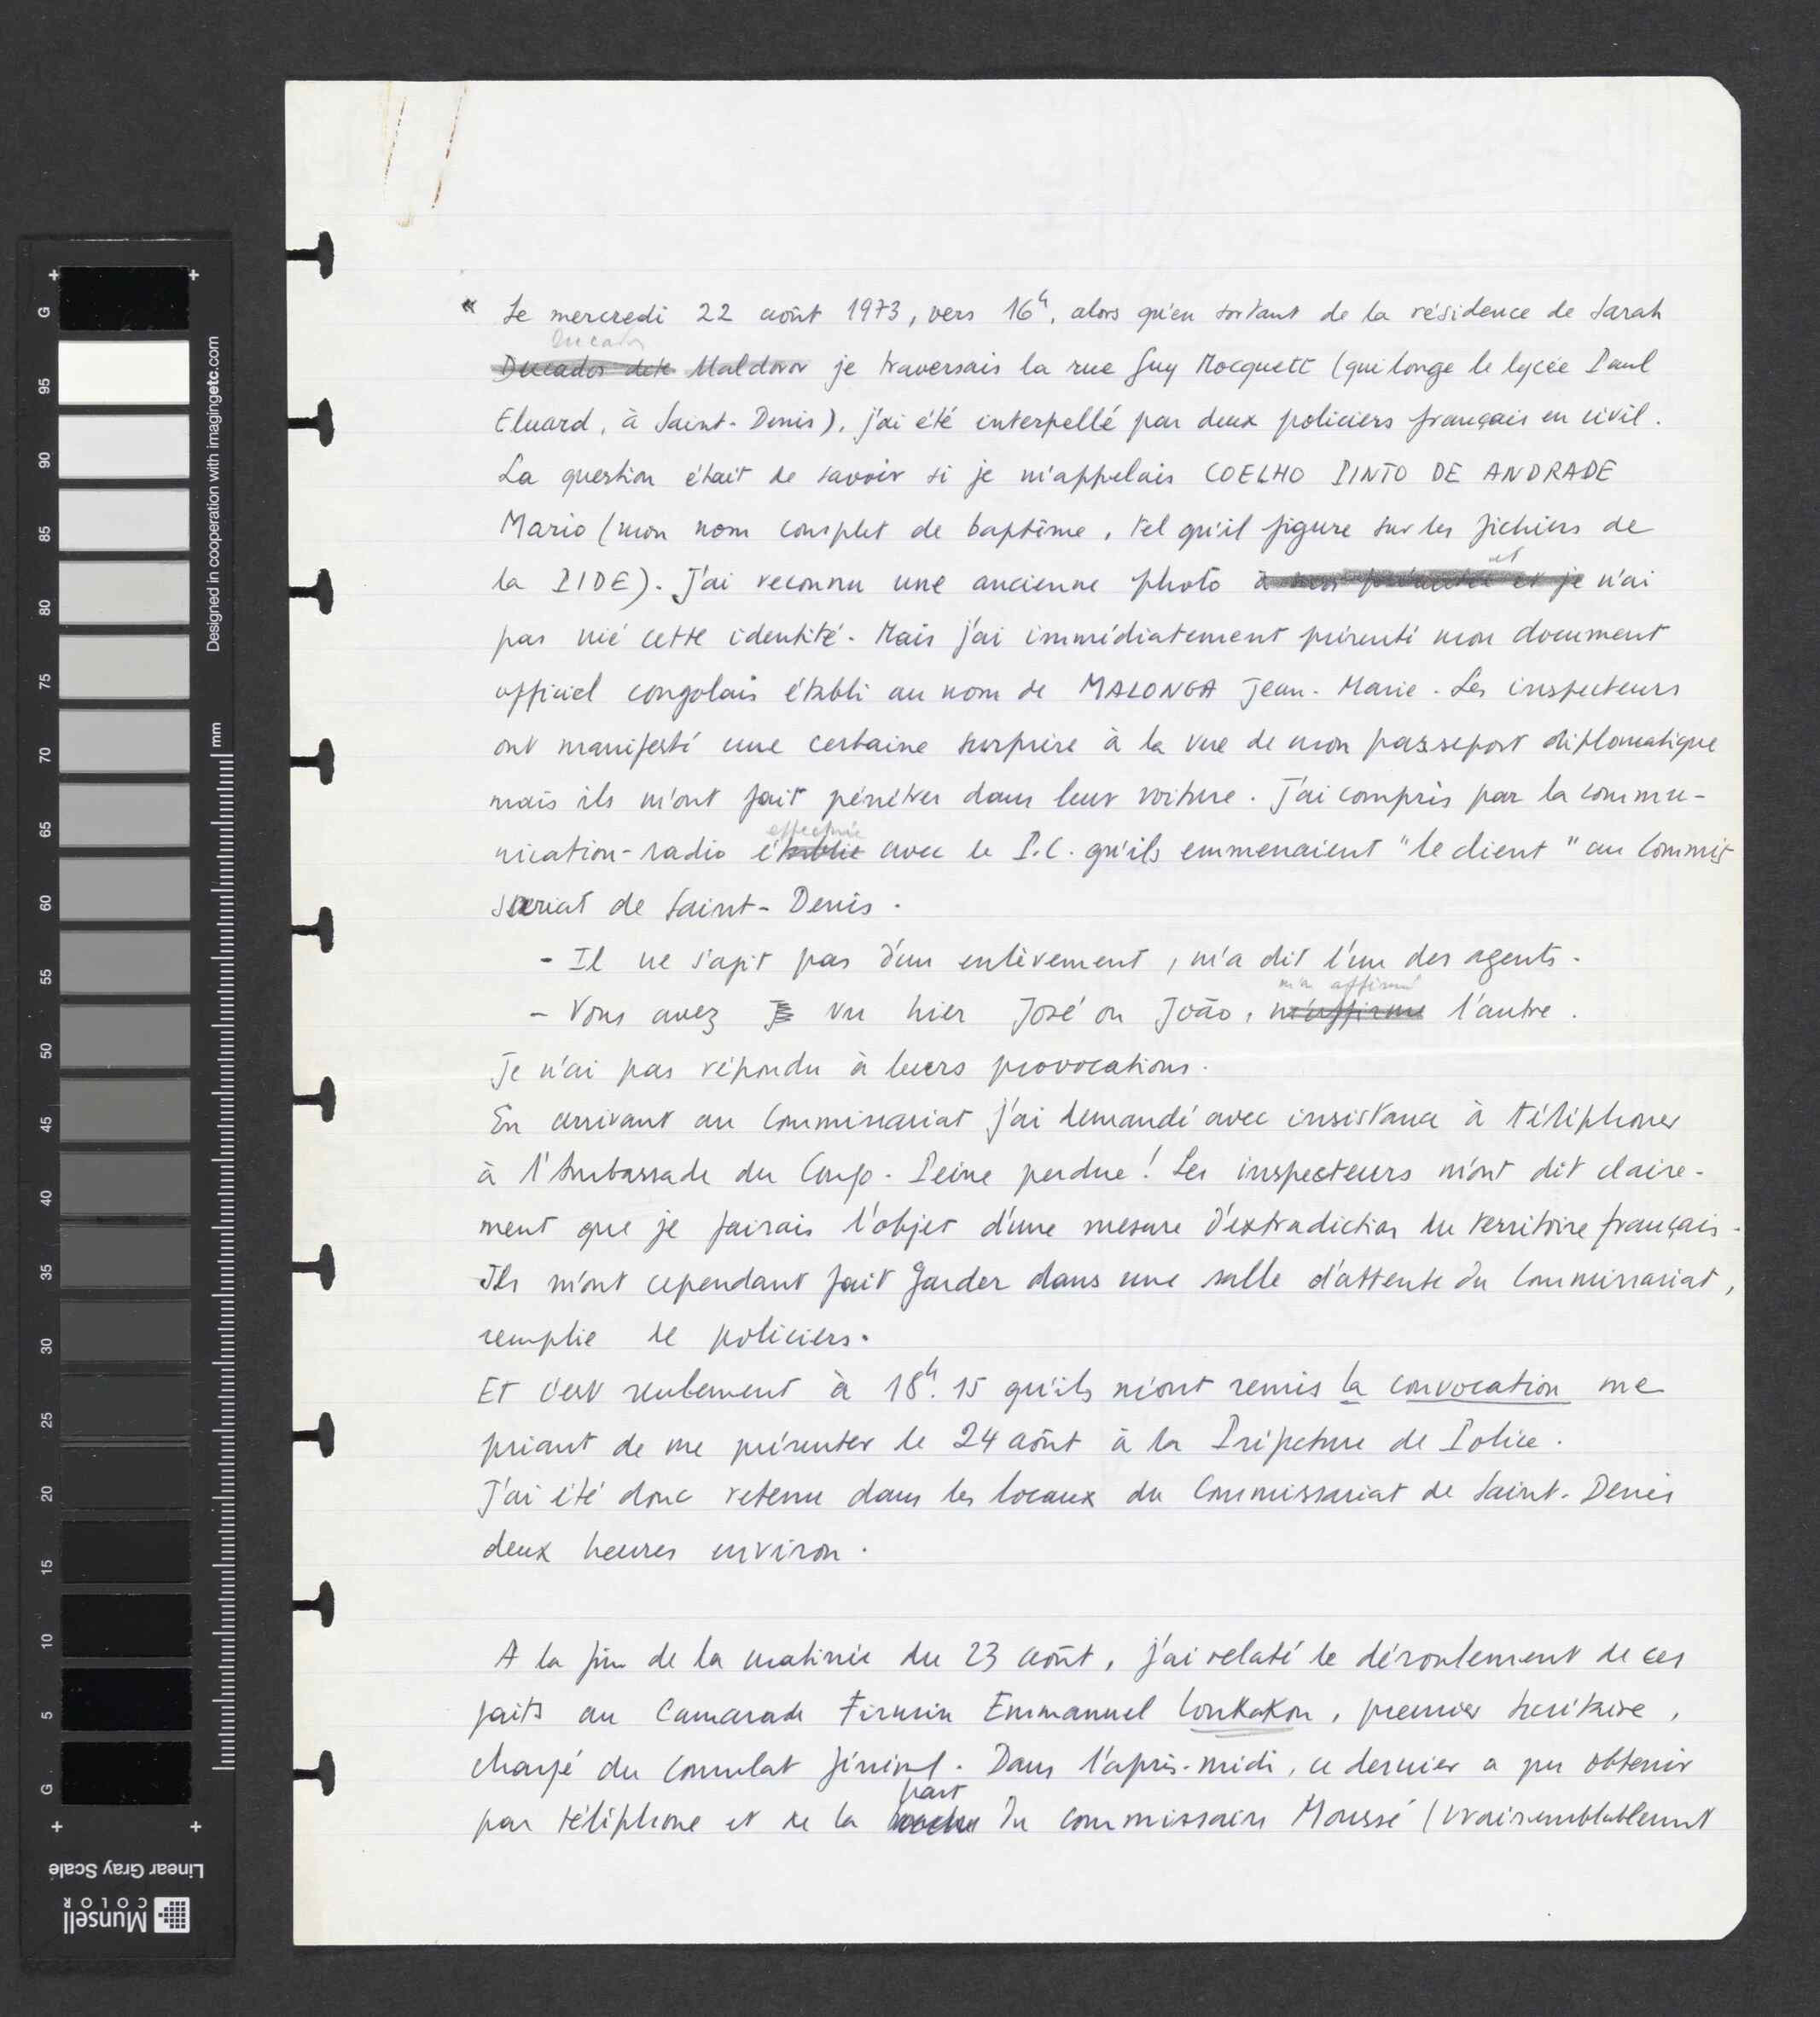 « Le mercredi 22 août 1973, vers 16h, alors qu'en sortant de la résidence de Sarah
Ducados
Ducados dite Maldoror je traversais la rue Guy Mocquett (qui longe le lycée Paul
Eluard, à Saint-Denis), j'ai été interpellé par deux policiers français en civil.
La question était de savoir si je m'appelais COELHO PINTO DE ANDRADE
Mario (mon nom complet de baptême, tel qu'il figure sur les fichiers de
et
la PIDE). J'ai reconnu une ancienne photo à moi présentée et je n'ai
pas nié cette identité. Mais j'ai immédiatement présenté mon document
officiel congolais établi au nom de MALONGA Jean-Marie. Les inspecteurs
ont manifesté une certaine surprise à la vue de mon passeport diplomatique
mais ils m'ont fait pénétrer dans leur voiture. J'ai compris par la commu-
effectuée
nication-radio établie avec le P.C. qu'ils emmenaient "le client" au Commis
sariat de Saint-Denis.
- Il ne s'agit pas d'un enlèvement, m'a dit l'un des agents.
m'a affirmé
- Vous avez vu hier José ou João, m'affirme l'autre.
Je n'ai pas répondu à leurs provocations.
En arrivant au Commissariat j'ai demandé avec insistance à téléphoner
à l'Ambassade du Congo. Peine perdue! Les inspecteurs m'ont dit claire-
ment que je faisais l'objet d'une mesure d'extradiction du territoire français.
Ils m'ont cependant fait garder dans une salle d'attente du Commissariat,
remplie de policiers.
Et c'est seulement à 18h.15 qu'ils m'ont remis la convocation me
priant de me présenter le 24 août à la Préfecture de Police.
J'ai été donc retenu dans les locaux du Commissariat de Saint-Denis
deux heures environ.
A la fin de la matinée du 23 août, j'ai relaté le déroulement de ces
faits au Camarade Firmin Emmanuel Loukakou, premier secrétaire,
chargé du Consulat général. Dans l'après-midi, ce dernier a pu obtenir
part
par téléphone et de la du commissaire Moussé (vraisemblablement
Designed in cooperation with imagingetc.com
mm
G
95
90
85
80
75
70
65
60
55
50
45
40
35
30
25
20
15
10
5
G
Linear Gray Scale
Munsell
COLOR